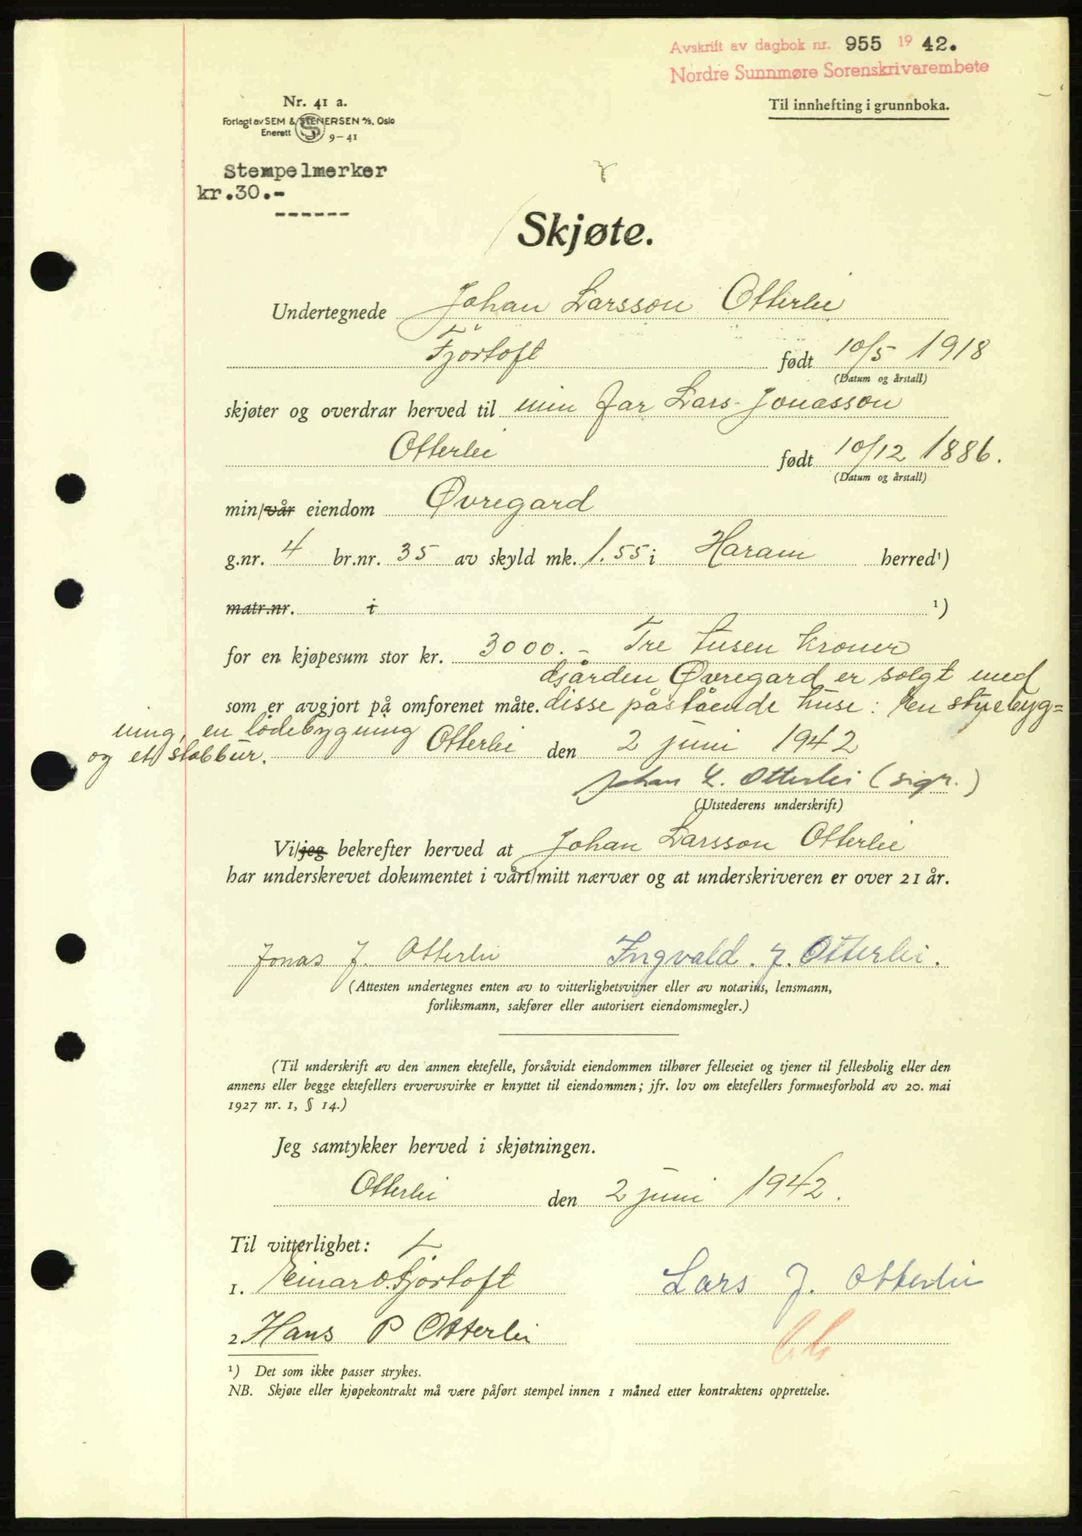 Avskrift av dagbok nr. 955 19 42.
Nordre Sunnmøre Sorenskrivarembete
Nr. 41 a.
Forlagt av SEM & STENERSEN A/S, Oslo
Enerett S 9-41
Til innhefting i grunnboka.
Stempelmerker
kr.30.-
------
Skjøte.
Undertegnede Johan Larsson Otterlei
Fjørtoft født 10/5 1918
(Datum og årstall)
skjøter og overdrar herved til min far Lars Jonasson
Otterlei født 10/12 1886.
(Datum og årstall)
min/vår eiendom Øvregard
g.nr. 4 br.nr. 35 av skyld mk. 1.55 i Haram herred¹)
matr.nr. i ¹)
for en kjøpesum stor kr. 3000.- Tre tusen kroner
Gjården Øvregard er solgt med
som er avgjort på omforenet måte. disse påstående huse: En stuebyg=
ning, en lødebygning
og et stabbur. Otterlei den 2 juni 1942
Johan L. Otterlei (sign.)
(Utstederens underskrift)
Vi/jeg bekrefter herved at Johan Larsson Otterlei
har underskrevet dokumentet i vårt/mitt nærvær og at underskriveren er over 21 år.
Jonas J. Otterlei Ingvald. J. Otterlei.
(Attesten undertegnes enten av to vitterlighetsvitner eller av notarius, lensmann,
forliksmann, sakfører eller autorisert eiendomsmegler.)
(Til underskrift av den annen ektefelle, forsåvidt eiendommen tilhører felleseiet og tjener til fellesbolig eller den
annens eller begge ektefellers ervervsvirke er knyttet til eiendommen; jfr. lov om ektefellers formuesforhold av 20. mai
1927 nr. 1, § 14.)
Jeg samtykker herved i skjøtningen.
Otterlei den 2 juni 1942.
Til vitterlighet:
1. Einar O. Fjørtoft Lars J. Otterlei
2. Hans P Otterlei
¹) Det som ikke passer strykes.
NB. Skjøte eller kjøpekontrakt må være påført stempel innen 1 måned etter kontraktens opprettelse.